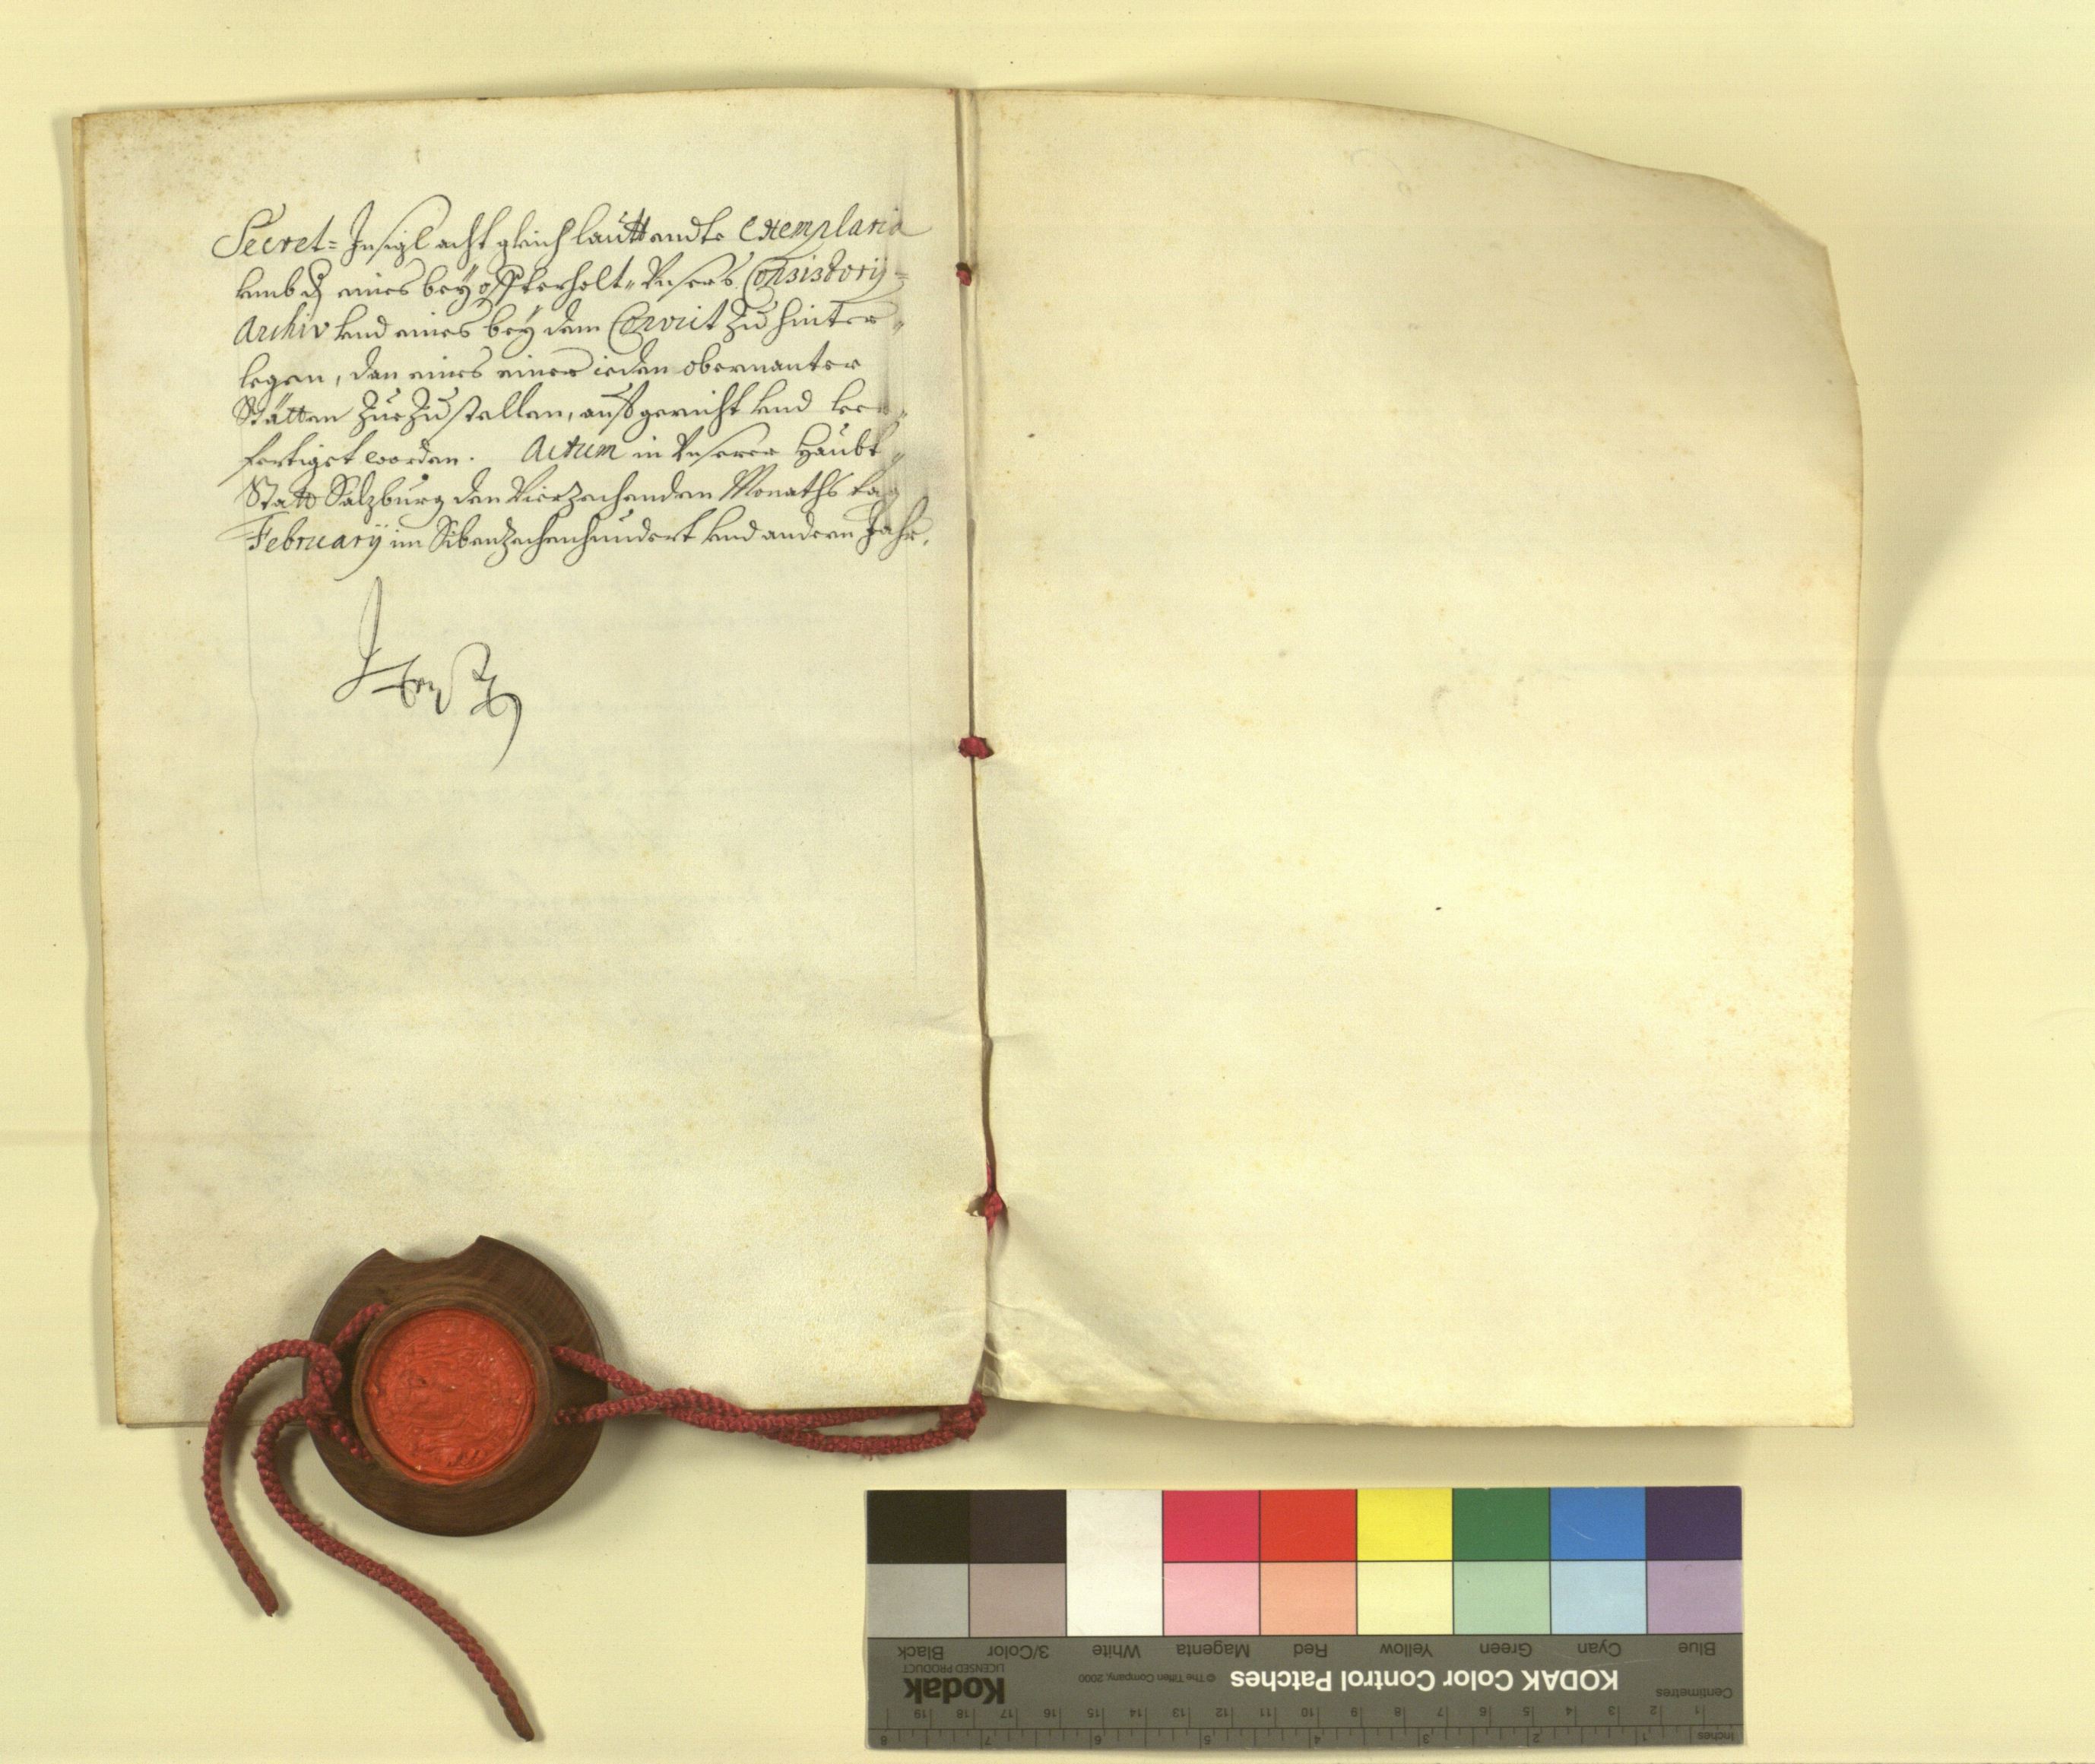 Secret= Insigl acht gleich lauttendte Exemplaria
umb dß eines bey offterholt=Unsers Consistorij=
Archiv und eines bey dem Convict zu hinter=
legen, dan eines einer ieden obernanter
Stätten zuezustellen, außgericht und ver=
fertiget worden. Actum in Unserer Haubt=
Statt Salzburg den Vierzechenden Monaths tag
February im Sibenzechenhundert und andern Jahr.
Blue
Cyan
Green
Yellow
Red
Magenta
White
3/Color
Black
KODAK Color Control Patches
© The Tiffen Company, 2000
Kodak
LICENSED PRODUCT
Centimetres
1 2 3 4 5 6 7 8 9 10 11 12 13 14 15 16 17 18 19
Inches
1 2 3 4 5 6 7 8